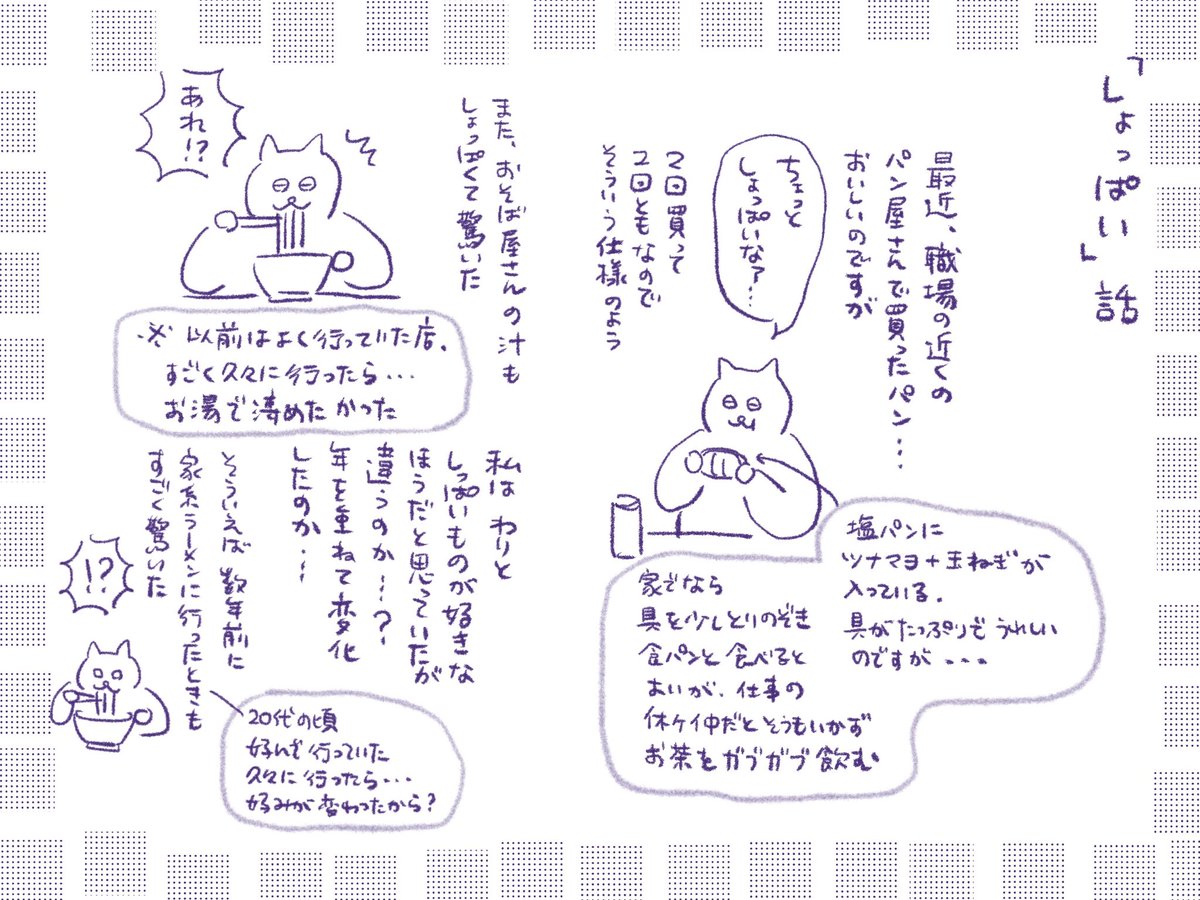 「しょっぱい」話
最近、職場の近くの
パン屋さんで買ったパン…
おいしいのですが
ちょっと
しょっぱいなァ…
2回買って
2回ともなので
そういう仕様のよう
塩パンに
ツナマヨ+玉ねぎが
入っている。
具がたっぷりでうれしい
のですが...
家でなら
具を少しとりのぞき
食パンと食べると
よいが、仕事の
休ケイ中だとそうもいかず
お茶をガブガブ飲む
また、おそば屋さんの汁も
しょっぱくて驚いた
あれ!?
※以前はよく行っていた店。
すごく久々に行ったら...
お湯で薄めたかった
私は わりと
しっぱいものが好きな
ほうだと思っていたが
違うのか…?
年を重ねて変化
したのか…
そういえば数年前に
家系ラーメンに行ったときも
すごく驚いた
!?
20代の頃
好んで行っていた
久々に行ったら...
好みが変わったから?